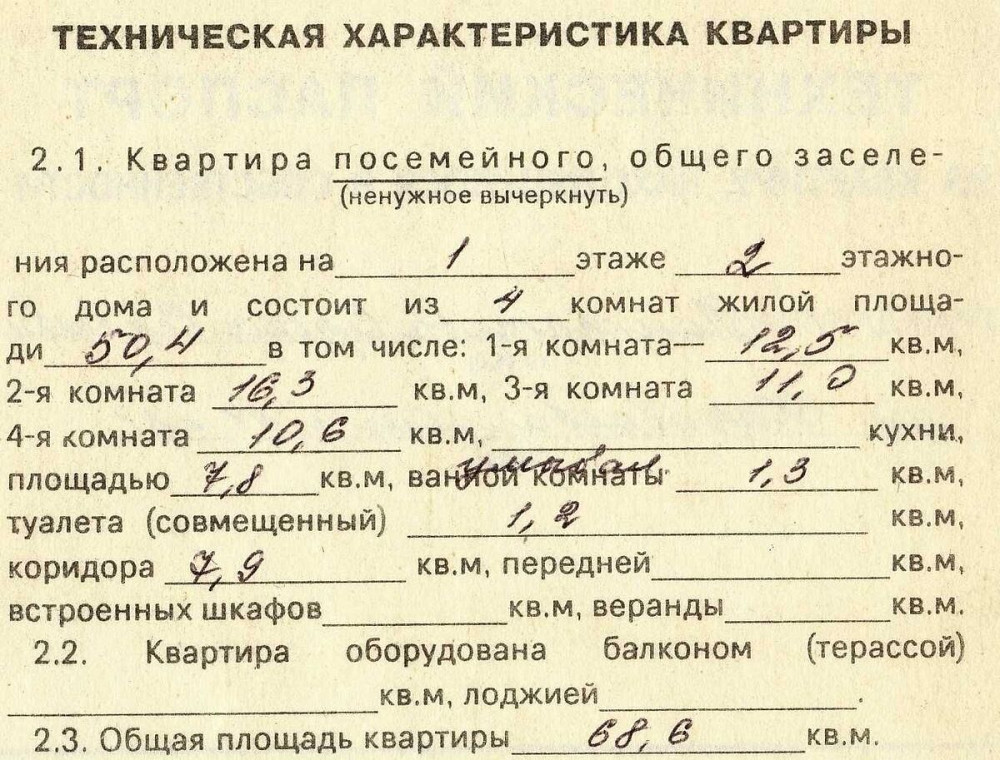 ТЕХНИЧЕСКАЯ ХАРАКТЕРИСТИКА КВАРТИРЫ
2.1. Квартира посемейного, общего заселе-
(ненужное вычеркнуть)
ния расположена на 1 этаже 2 этажно-
го дома и состоит из 4 комнат жилой площа-
ди 50,4 в том числе: 1-я комната— 12,5 кв.м,
2-я комната 16,3 кв.м, 3-я комната 11,0 кв.м,
4-я комната 10,6 кв.м, кухни,
площадью 7,8 кв.м, ванной комнаты умывал. 1,3 кв.м,
туалета (совмещенный) 1,2 кв.м,
коридора 7,9 кв.м, передней кв.м,
встроенных шкафов кв.м, веранды кв.м.
2.2. Квартира оборудована балконом (терассой)
кв.м, лоджией .
2.3. Общая площадь квартиры 68,6 кв.м.